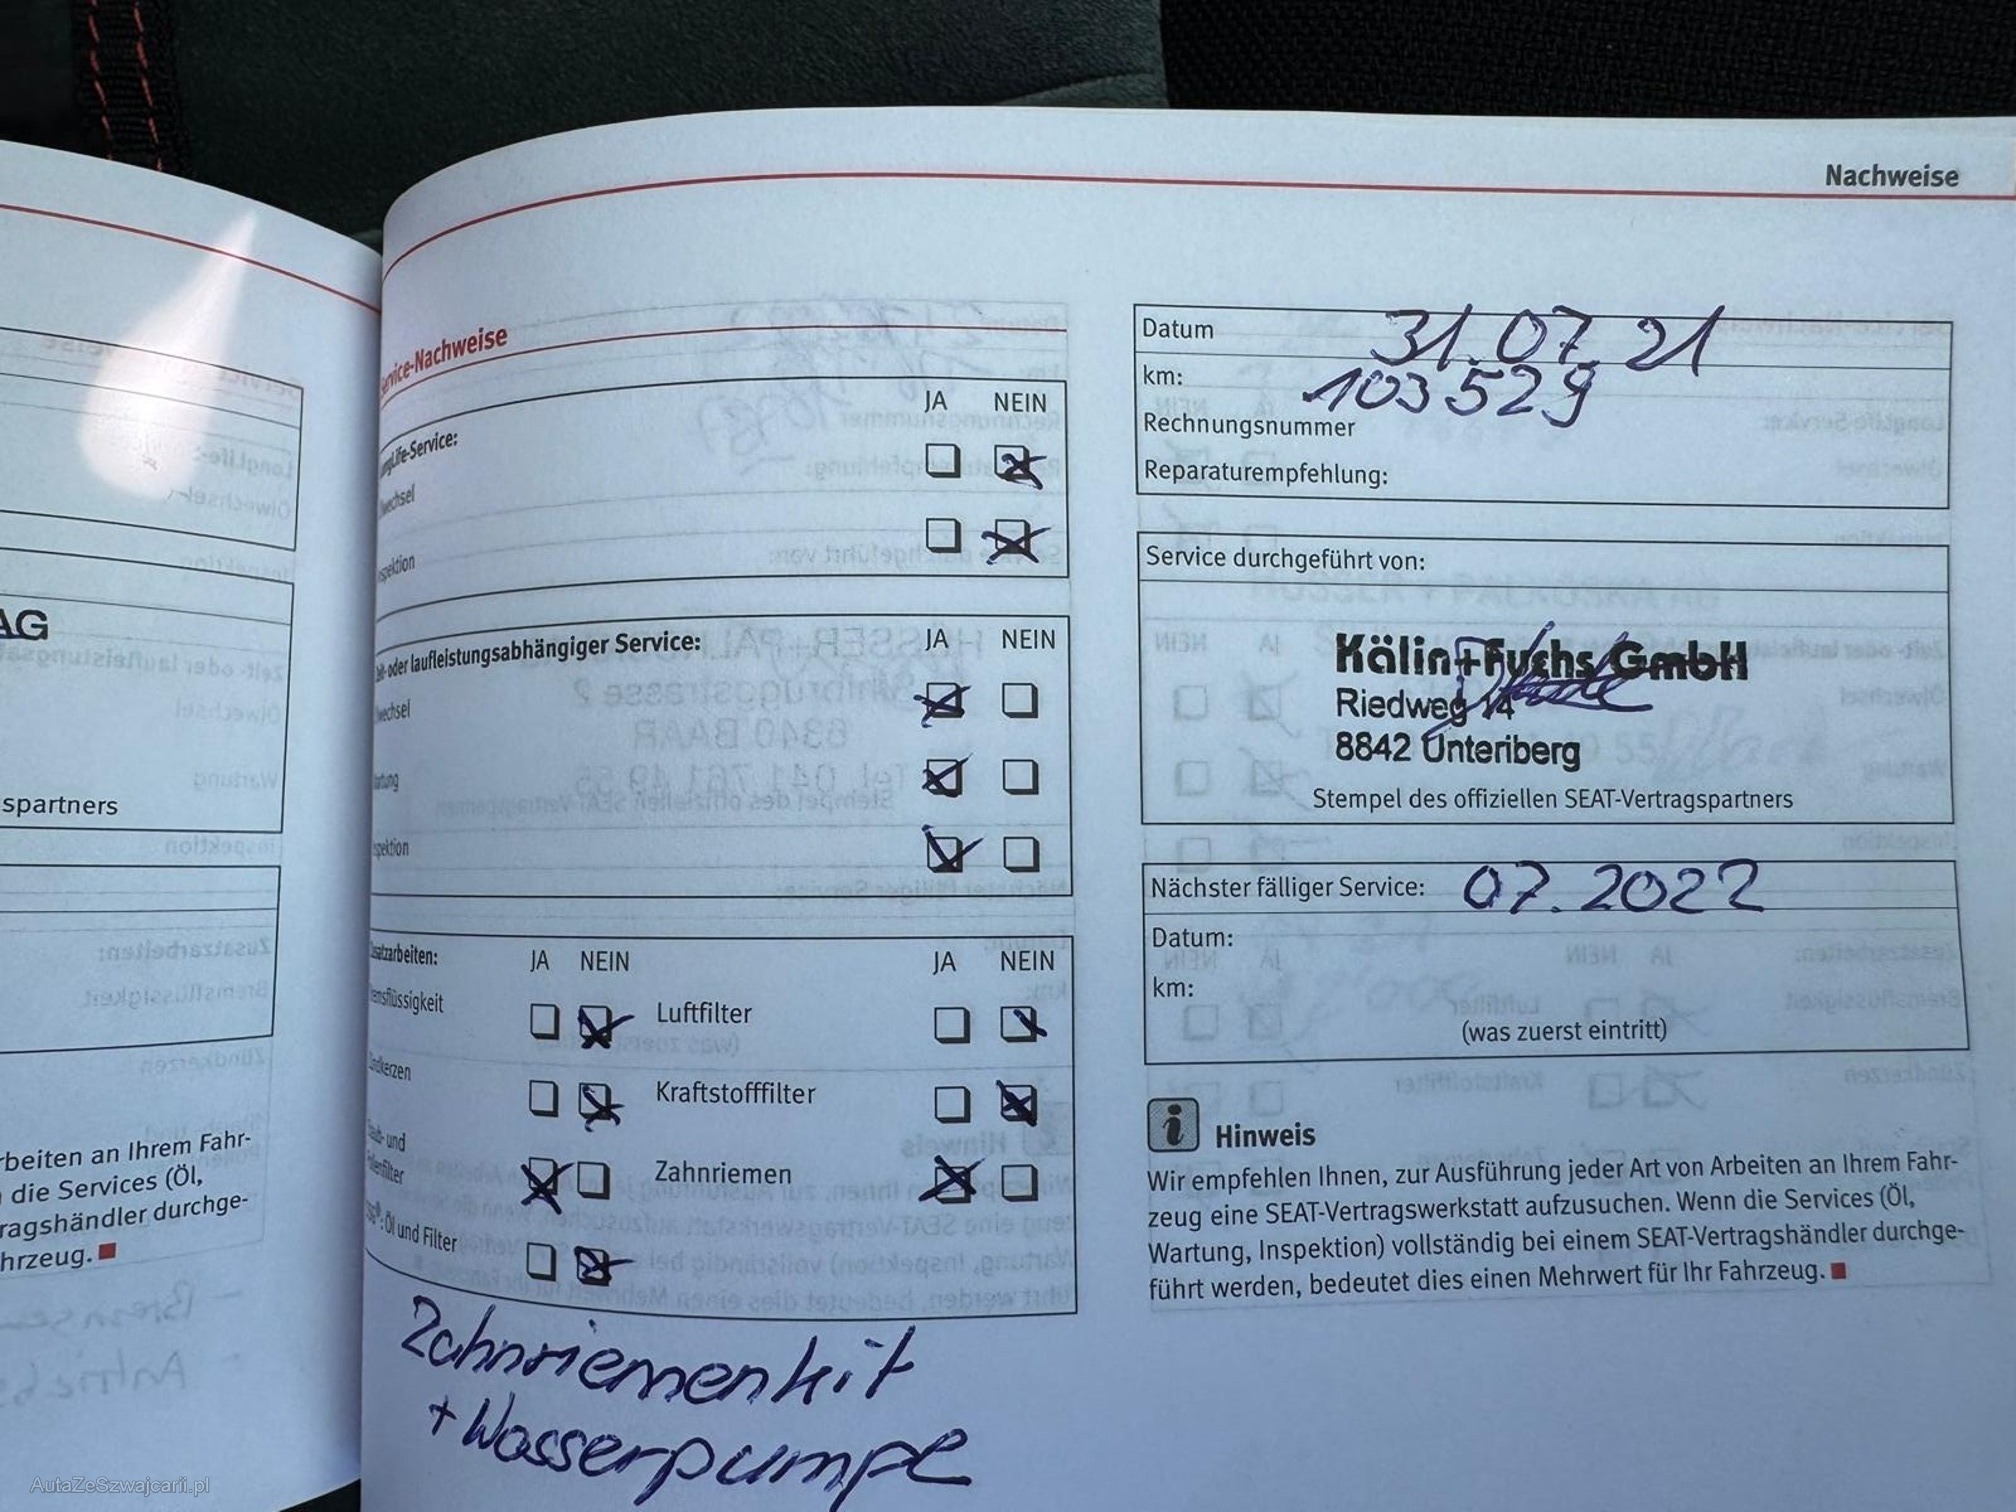 Nachweise
AG
spartners
beiten an Ihrem Fahr-
die Services (Öl,
ragshändler durchge-
hrzeug.
rvice-Nachweise
JA NEIN
ngLife-Service:
lwechsel
spektion
it- oder laufleistungsabhängiger Service: JA NEIN
wechsel
artung
spektion
usatzarbeiten: JA NEIN JA NEIN
emsflüssigkeit Luftfilter
ündkerzen Kraftstofffilter
taub- und
ollenfilter Zahnriemen
SG®: Öl und Filter
Zahnriemenkit
+ Wasserpumpe
Datum 31.07.21
km: 103529
Rechnungsnummer
Reparaturempfehlung:
Service durchgeführt von:
Kälin+Fuchs GmbH
Riedweg 14
8842 Unteriberg
Stempel des offiziellen SEAT-Vertragspartners
Nächster fälliger Service: 07.2022
Datum:
km:
(was zuerst eintritt)
i Hinweis
Wir empfehlen Ihnen, zur Ausführung jeder Art von Arbeiten an Ihrem Fahr-
zeug eine SEAT-Vertragswerkstatt aufzusuchen. Wenn die Services (Öl,
Wartung, Inspektion) vollständig bei einem SEAT-Vertragshändler durchge-
führt werden, bedeutet dies einen Mehrwert für Ihr Fahrzeug.
AutaZeSzwajcarii.pl